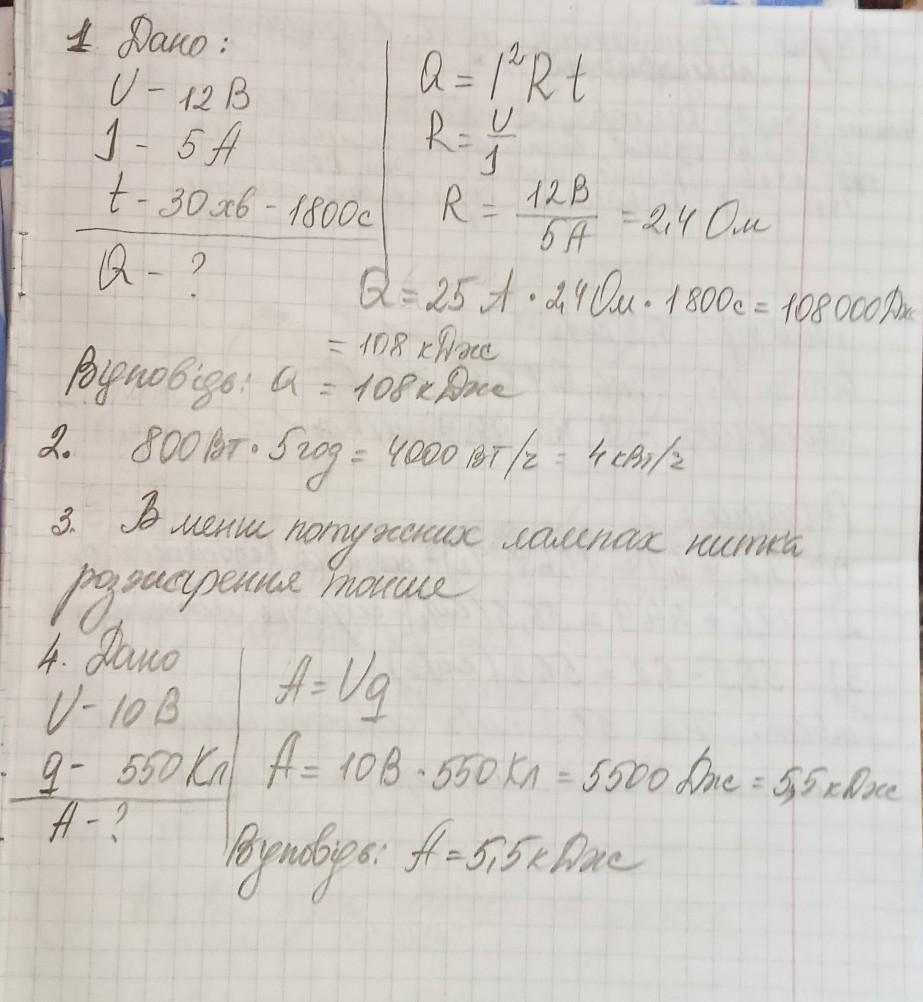 1. Дано:
U - 12 В
I - 5 А
t - 30 хв - 1800с
Q - ?
Q = I²Rt
R = U/I
R = 12В/5А = 2,4 Ом
Q = 25 А · 2,4 Ом · 1800с = 108 000 Дж
= 108 кДж
Відповідь: Q = 108 кДж
2. 800 Вт · 5 год = 4000 Вт/г = 4 кВт/г
3. В менш потужних лампах нитка
розжарення тонше
4. Дано
U - 10 В
q - 550 Кл
A - ?
A = Uq
A = 10В · 550 Кл = 5500 Дж = 5,5 кДж
Відповідь: A = 5,5 кДж